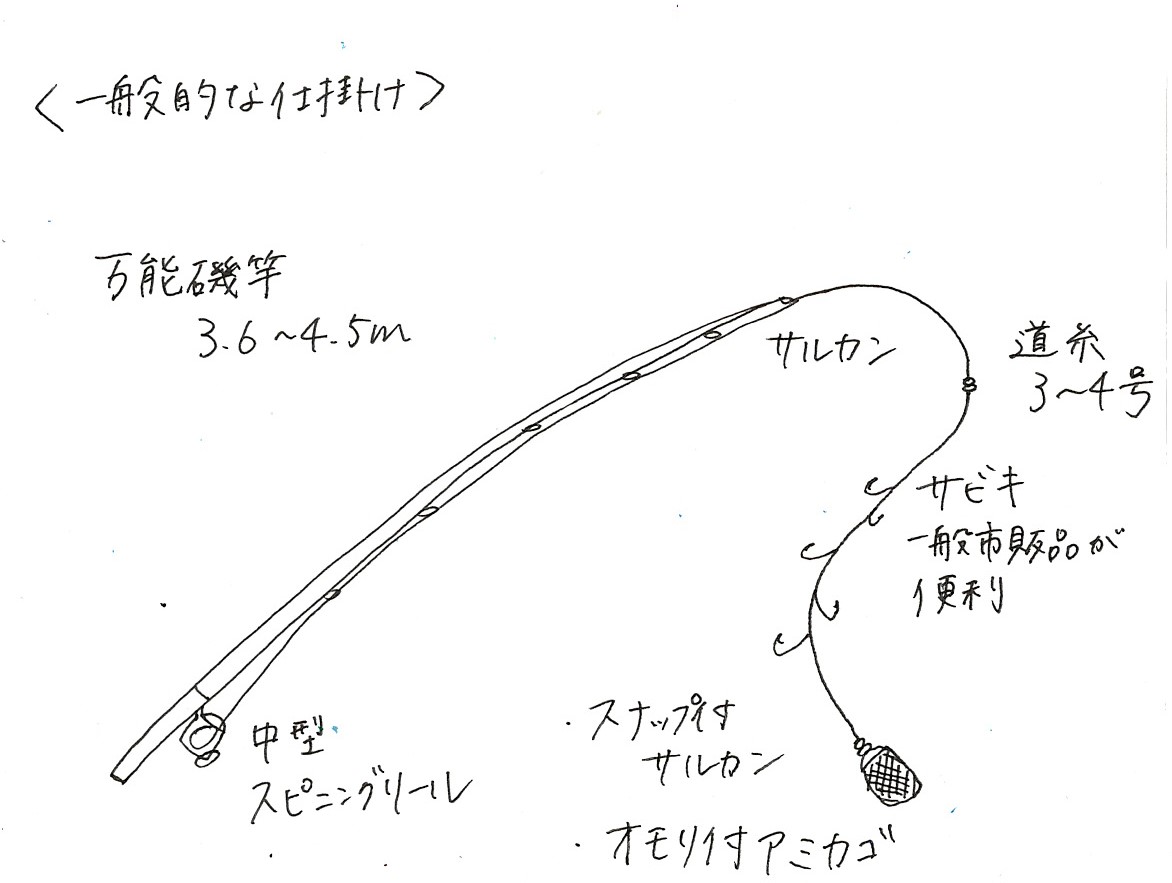 <一般的な仕掛け>
万能磯竿
3.6~4.5m
サルカン
道糸
3~4号
サビキ
一般市販品が
便利
中型
スピニングリール
・スナップ付
サルカン
・オモリ付アミカゴ